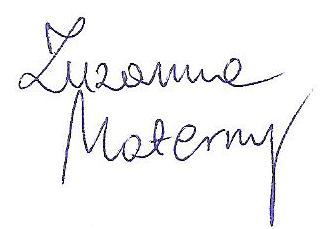 Zuzanna
Materny